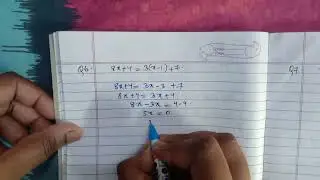 Q6. 8x+4 = 3(x-1)+7.
8x+4= 3x-3 +7
8x+4= 3x+4
8x-3x = 4-4
5x = 0
Q7